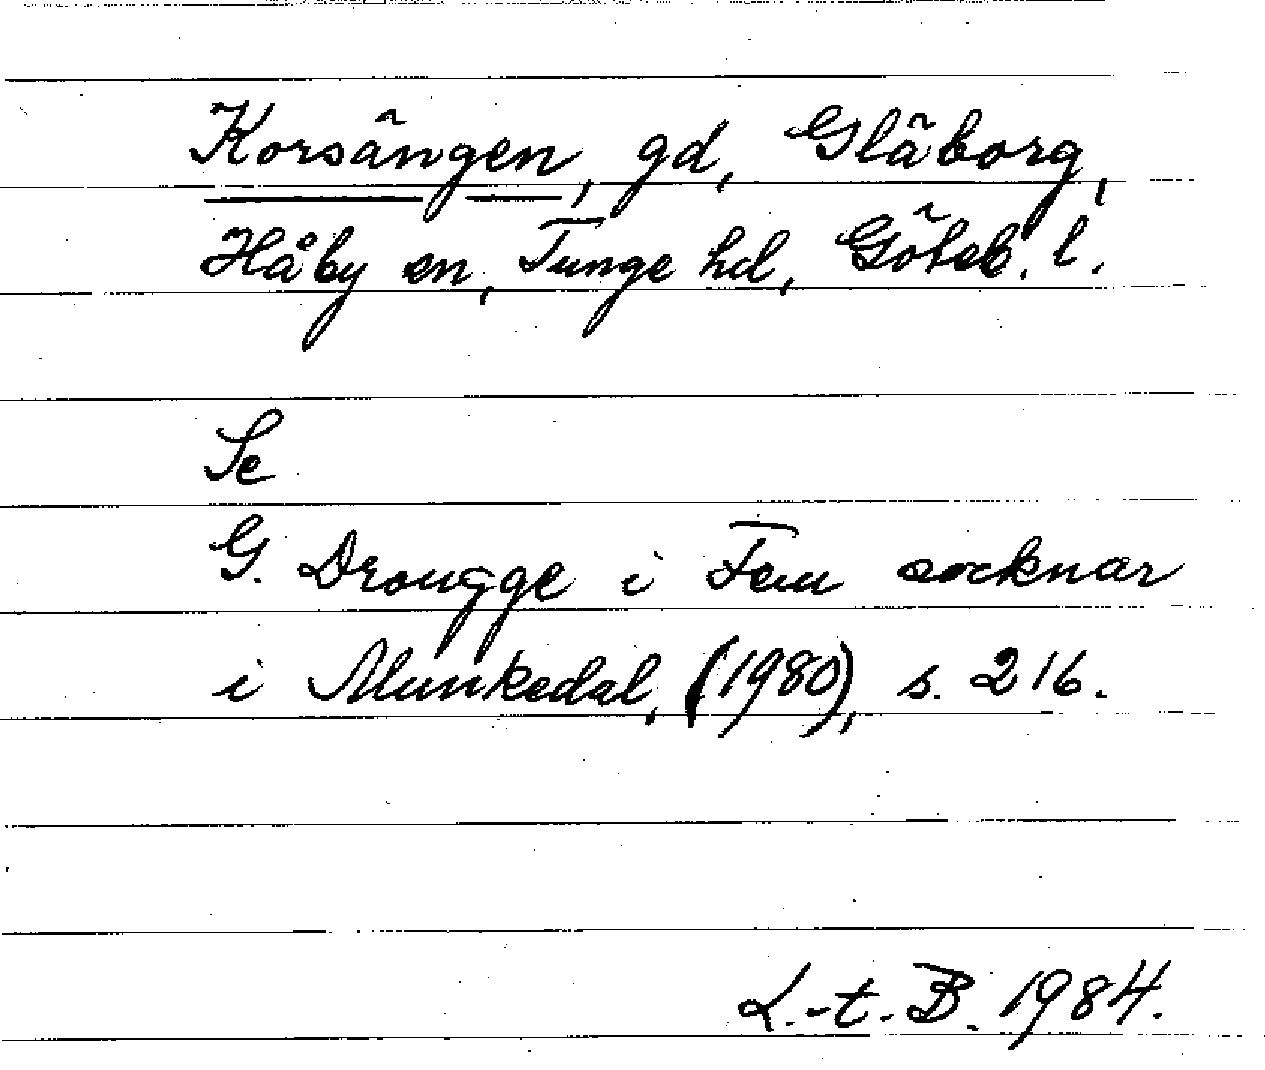 Korsängen, gd, Gläborg,
Håby sn, Tunge hd, Göteb. l.
Se
G. Drougge i Fem socknar
i Munkedal, (1980), s. 216.
L.-t. B. 1984.